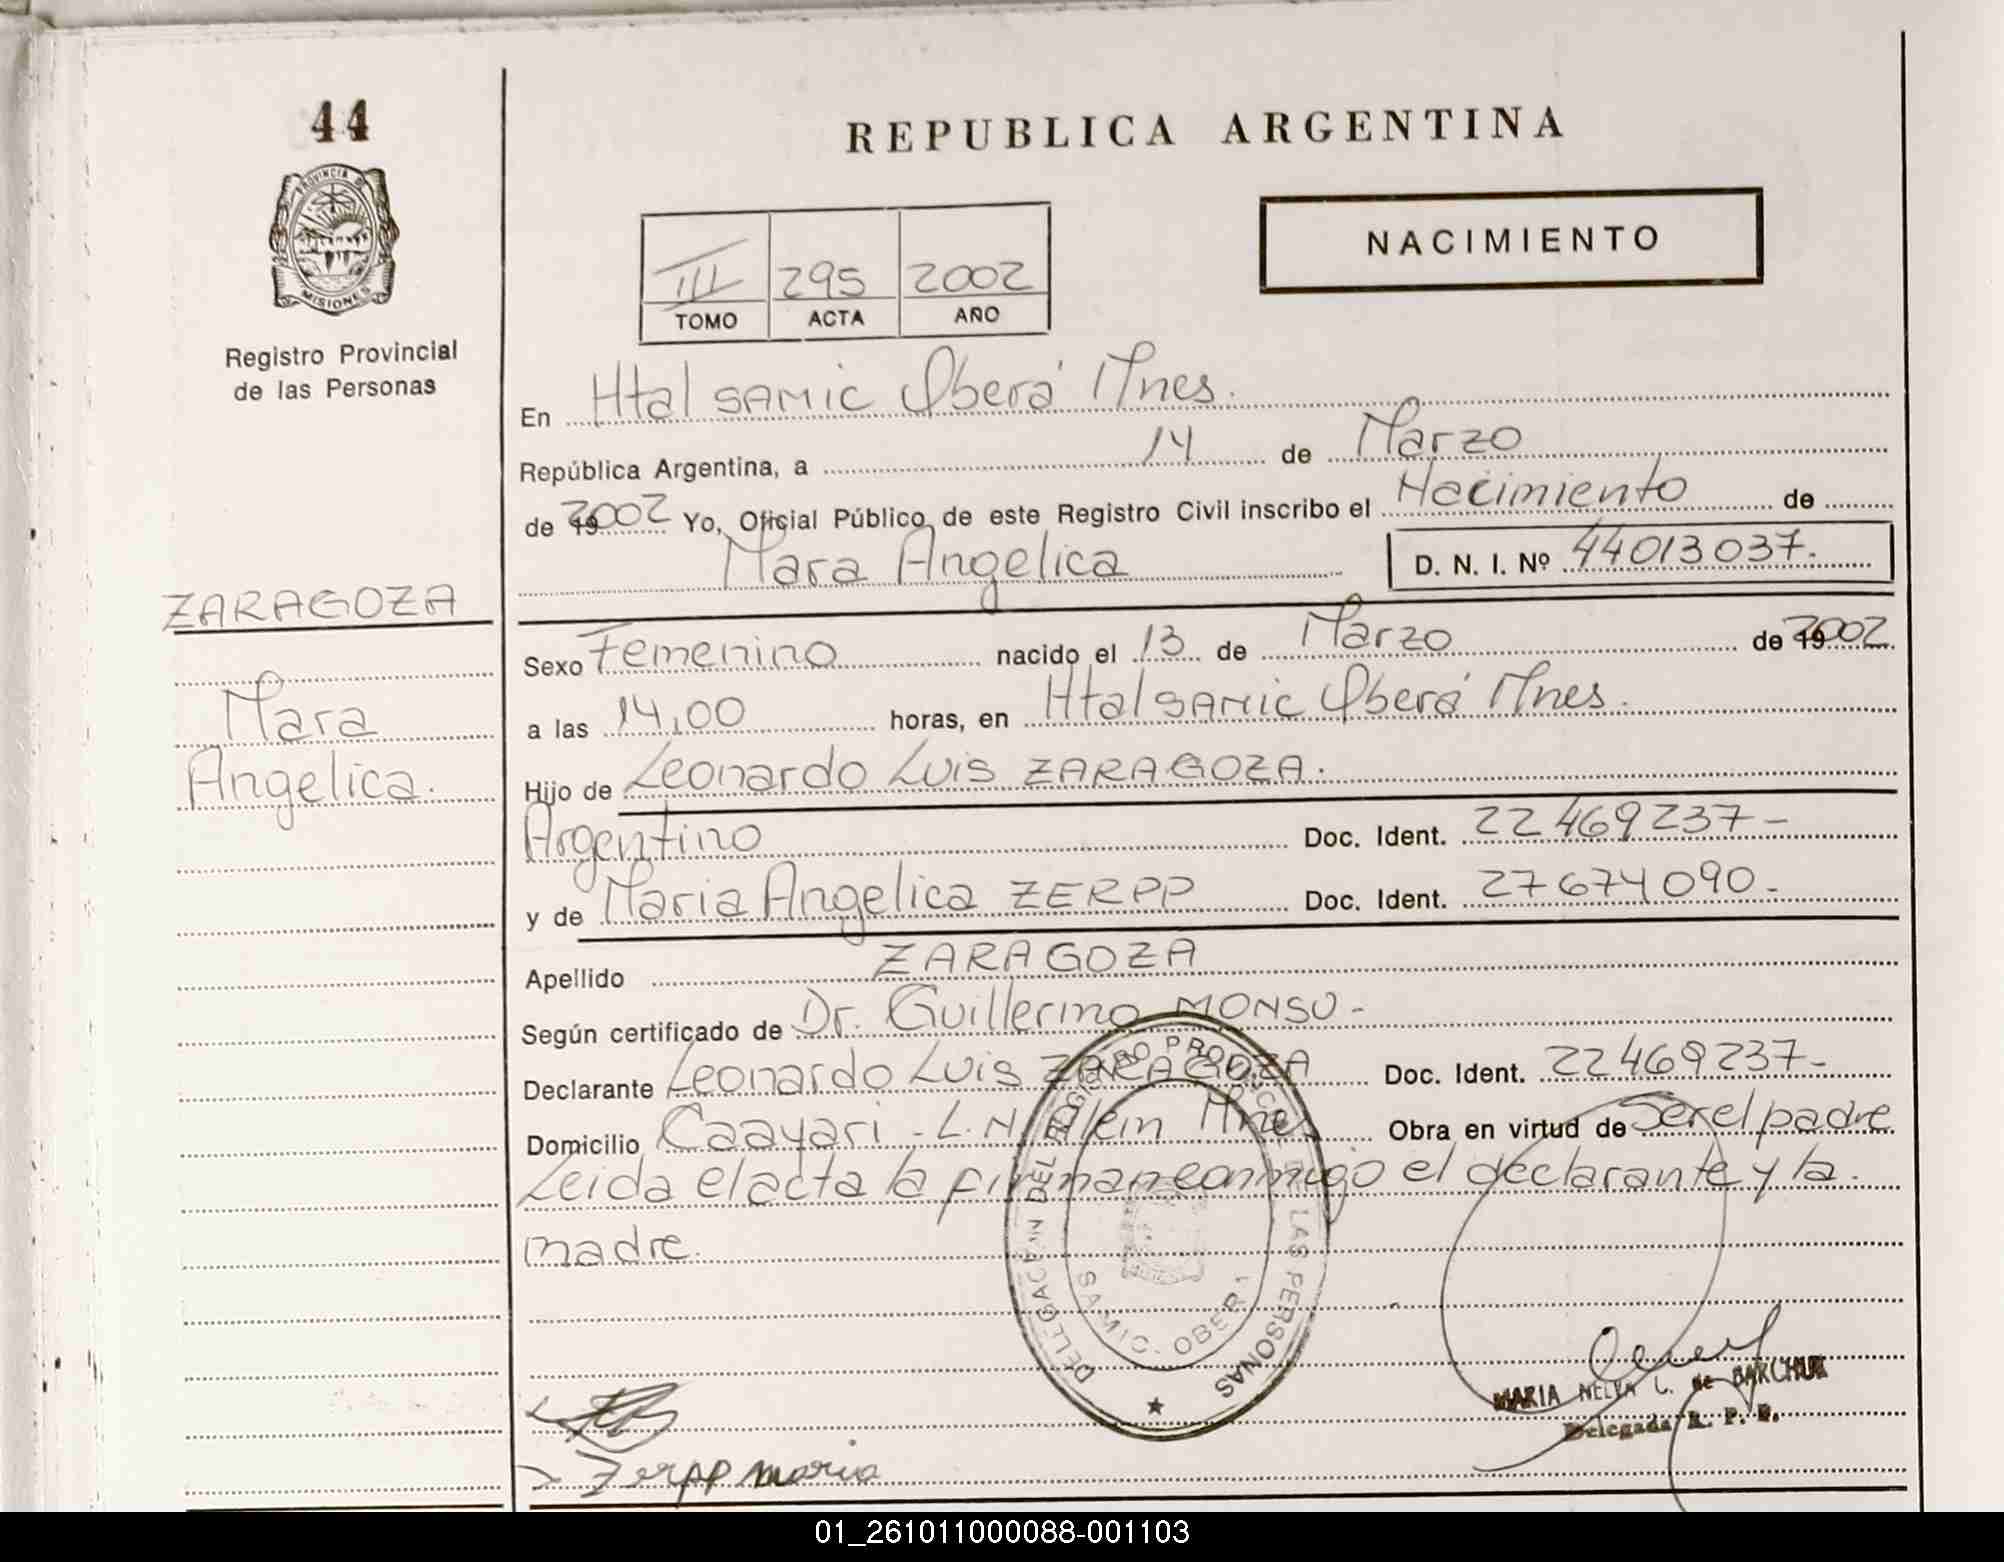 44
REPUBLICA ARGENTINA
PROVINCIA DE MISIONES
NACIMIENTO
III 295 2002
TOMO ACTA AÑO
Registro Provincial
de las Personas
En Htal SAMIC Oberá Mnes.
República Argentina, a 14 de Marzo
de 2002 Yo, Oficial Público de este Registro Civil inscribo el Nacimiento de
Mara Angelica D. N. I. Nº 44013037.
ZARAGOZA
Mara
Angelica.
Sexo Femenino nacido el 13 de Marzo de 2002
a las 14,00 horas, en Htal SAMIC Oberá Mnes.
Hijo de Leonardo Luis ZARAGOZA.
Argentino Doc. Ident. 22469237-
y de Maria Angelica ZERPP Doc. Ident. 27674090-
Apellido ZARAGOZA
Según certificado de Dr. Guillermo MONSU-
Declarante Leonardo Luis ZARAGOZA Doc. Ident. 22469237-
Domicilio Caayari - L.N. Alem Mnes Obra en virtud de Ser el padre
Leida el acta la firman conmigo el declarante y la
madre.
DELEGACION DEL REGISTRO PROVINCIAL DE LAS PERSONAS
SAMIC. OBERA
MARIA NELVA L. de BAKCHUK
Delegada R. P. P.
Zerpp maria
01_261011000088-001103